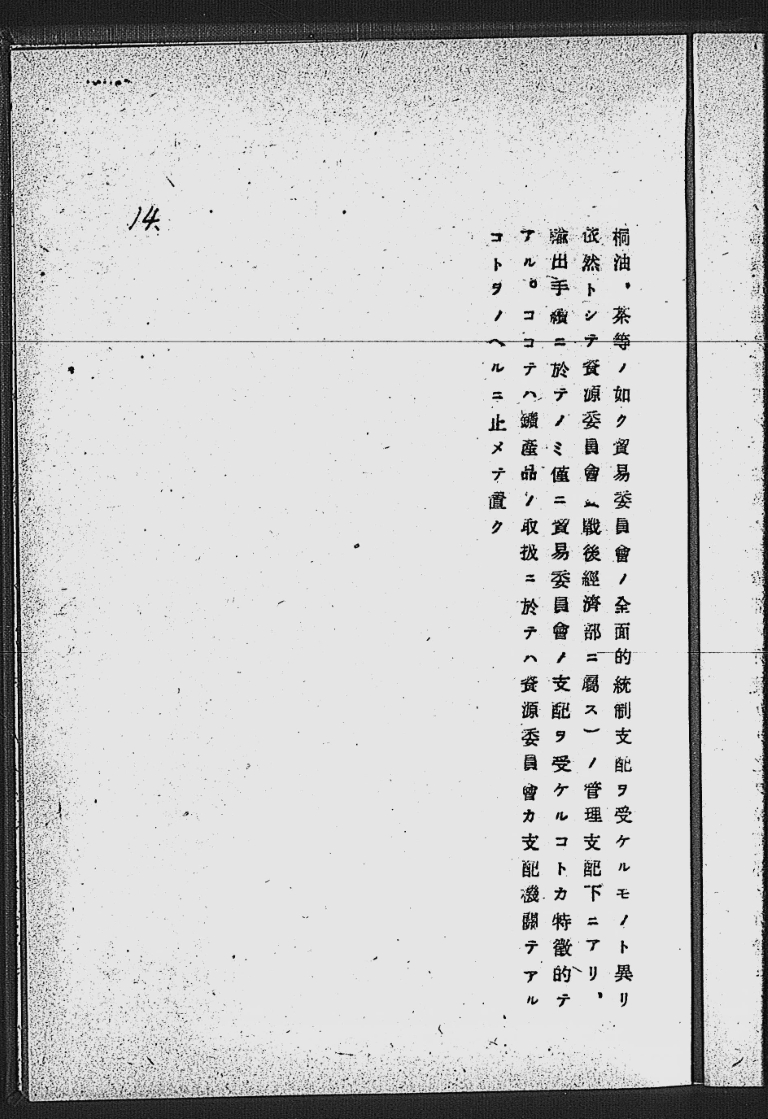 桐油、茶等ノ如ク貿易委員會ノ全面的統制支配ヲ受ケルモノト異リ
依然トシテ資源委員會(戰後經濟部ニ屬ス)ノ管理支配下ニアリ、
輸出手續ニ於テノミ僅ニ貿易委員會ノ支配ヲ受ケルコトカ特徵的テ
アル。ココテハ鑛產品ノ取扱ニ於テハ資源委員會カ支配機關テアル
コトヲノヘルニ止メテ置ク
14.